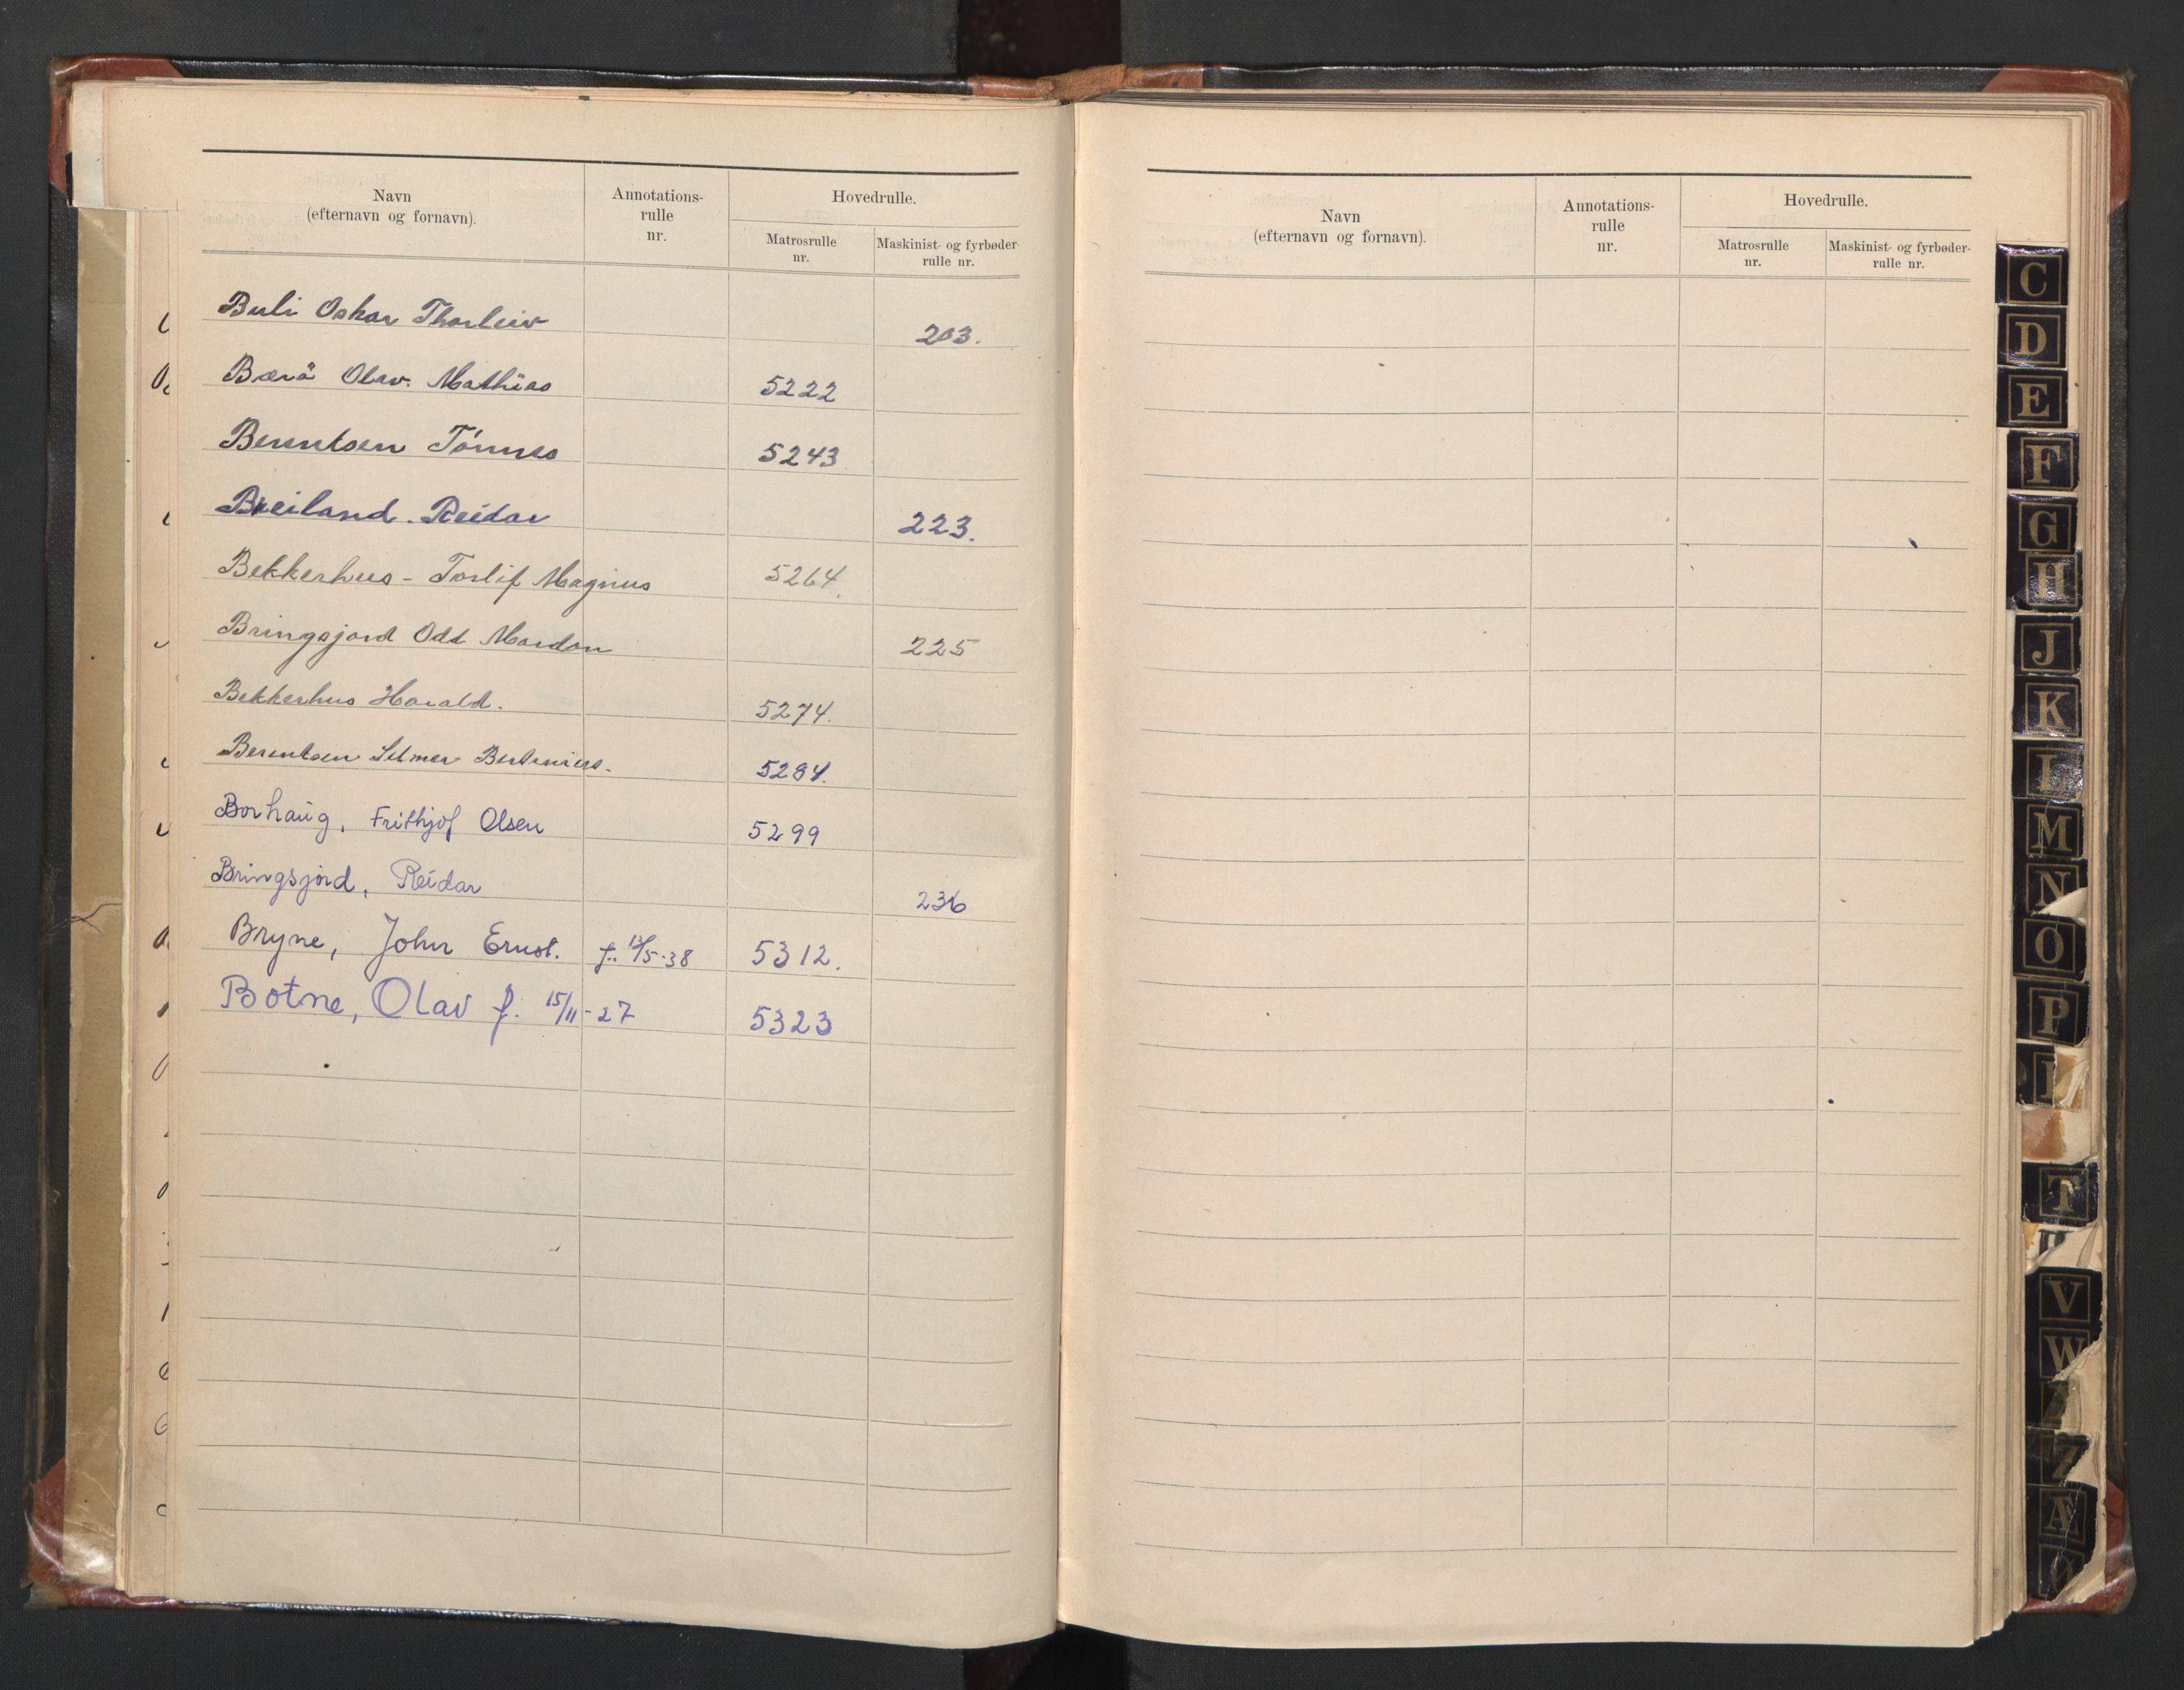 Navn
(efternavn og fornavn).
Annotations-
rulle
nr.
Hovedrulle.
Matrosrulle
nr.
Maskinist- og fyrbøder-
rulle nr.
Buli Oskar Thorleiv 203.
Bærö Olav. Mathias 5222
Berentsen Tönnes 5243
Breiland. Reidar 223.
Bekkerhus - Torlif Magnus 5264.
Bringsjord Odd Mardon 225
Bekkerhus Harald. 5274.
Berentsen Selmer 5284.
Borhaug, Frithjof Olsen 5299
Bringsjord, Reidar 236
Bryne, John Ernst. f. 12/5-38 5312.
Botne, Olav f. 15/11-27 5323
Navn
(efternavn og fornavn).
Annotations-
rulle
nr.
Hovedrulle.
Matrosrulle
nr.
Maskinist- og fyrbøder-
rulle nr.
C
D
E
F
G
H
J
K
L
M
N
O
P
T
V
W
Z
Æ